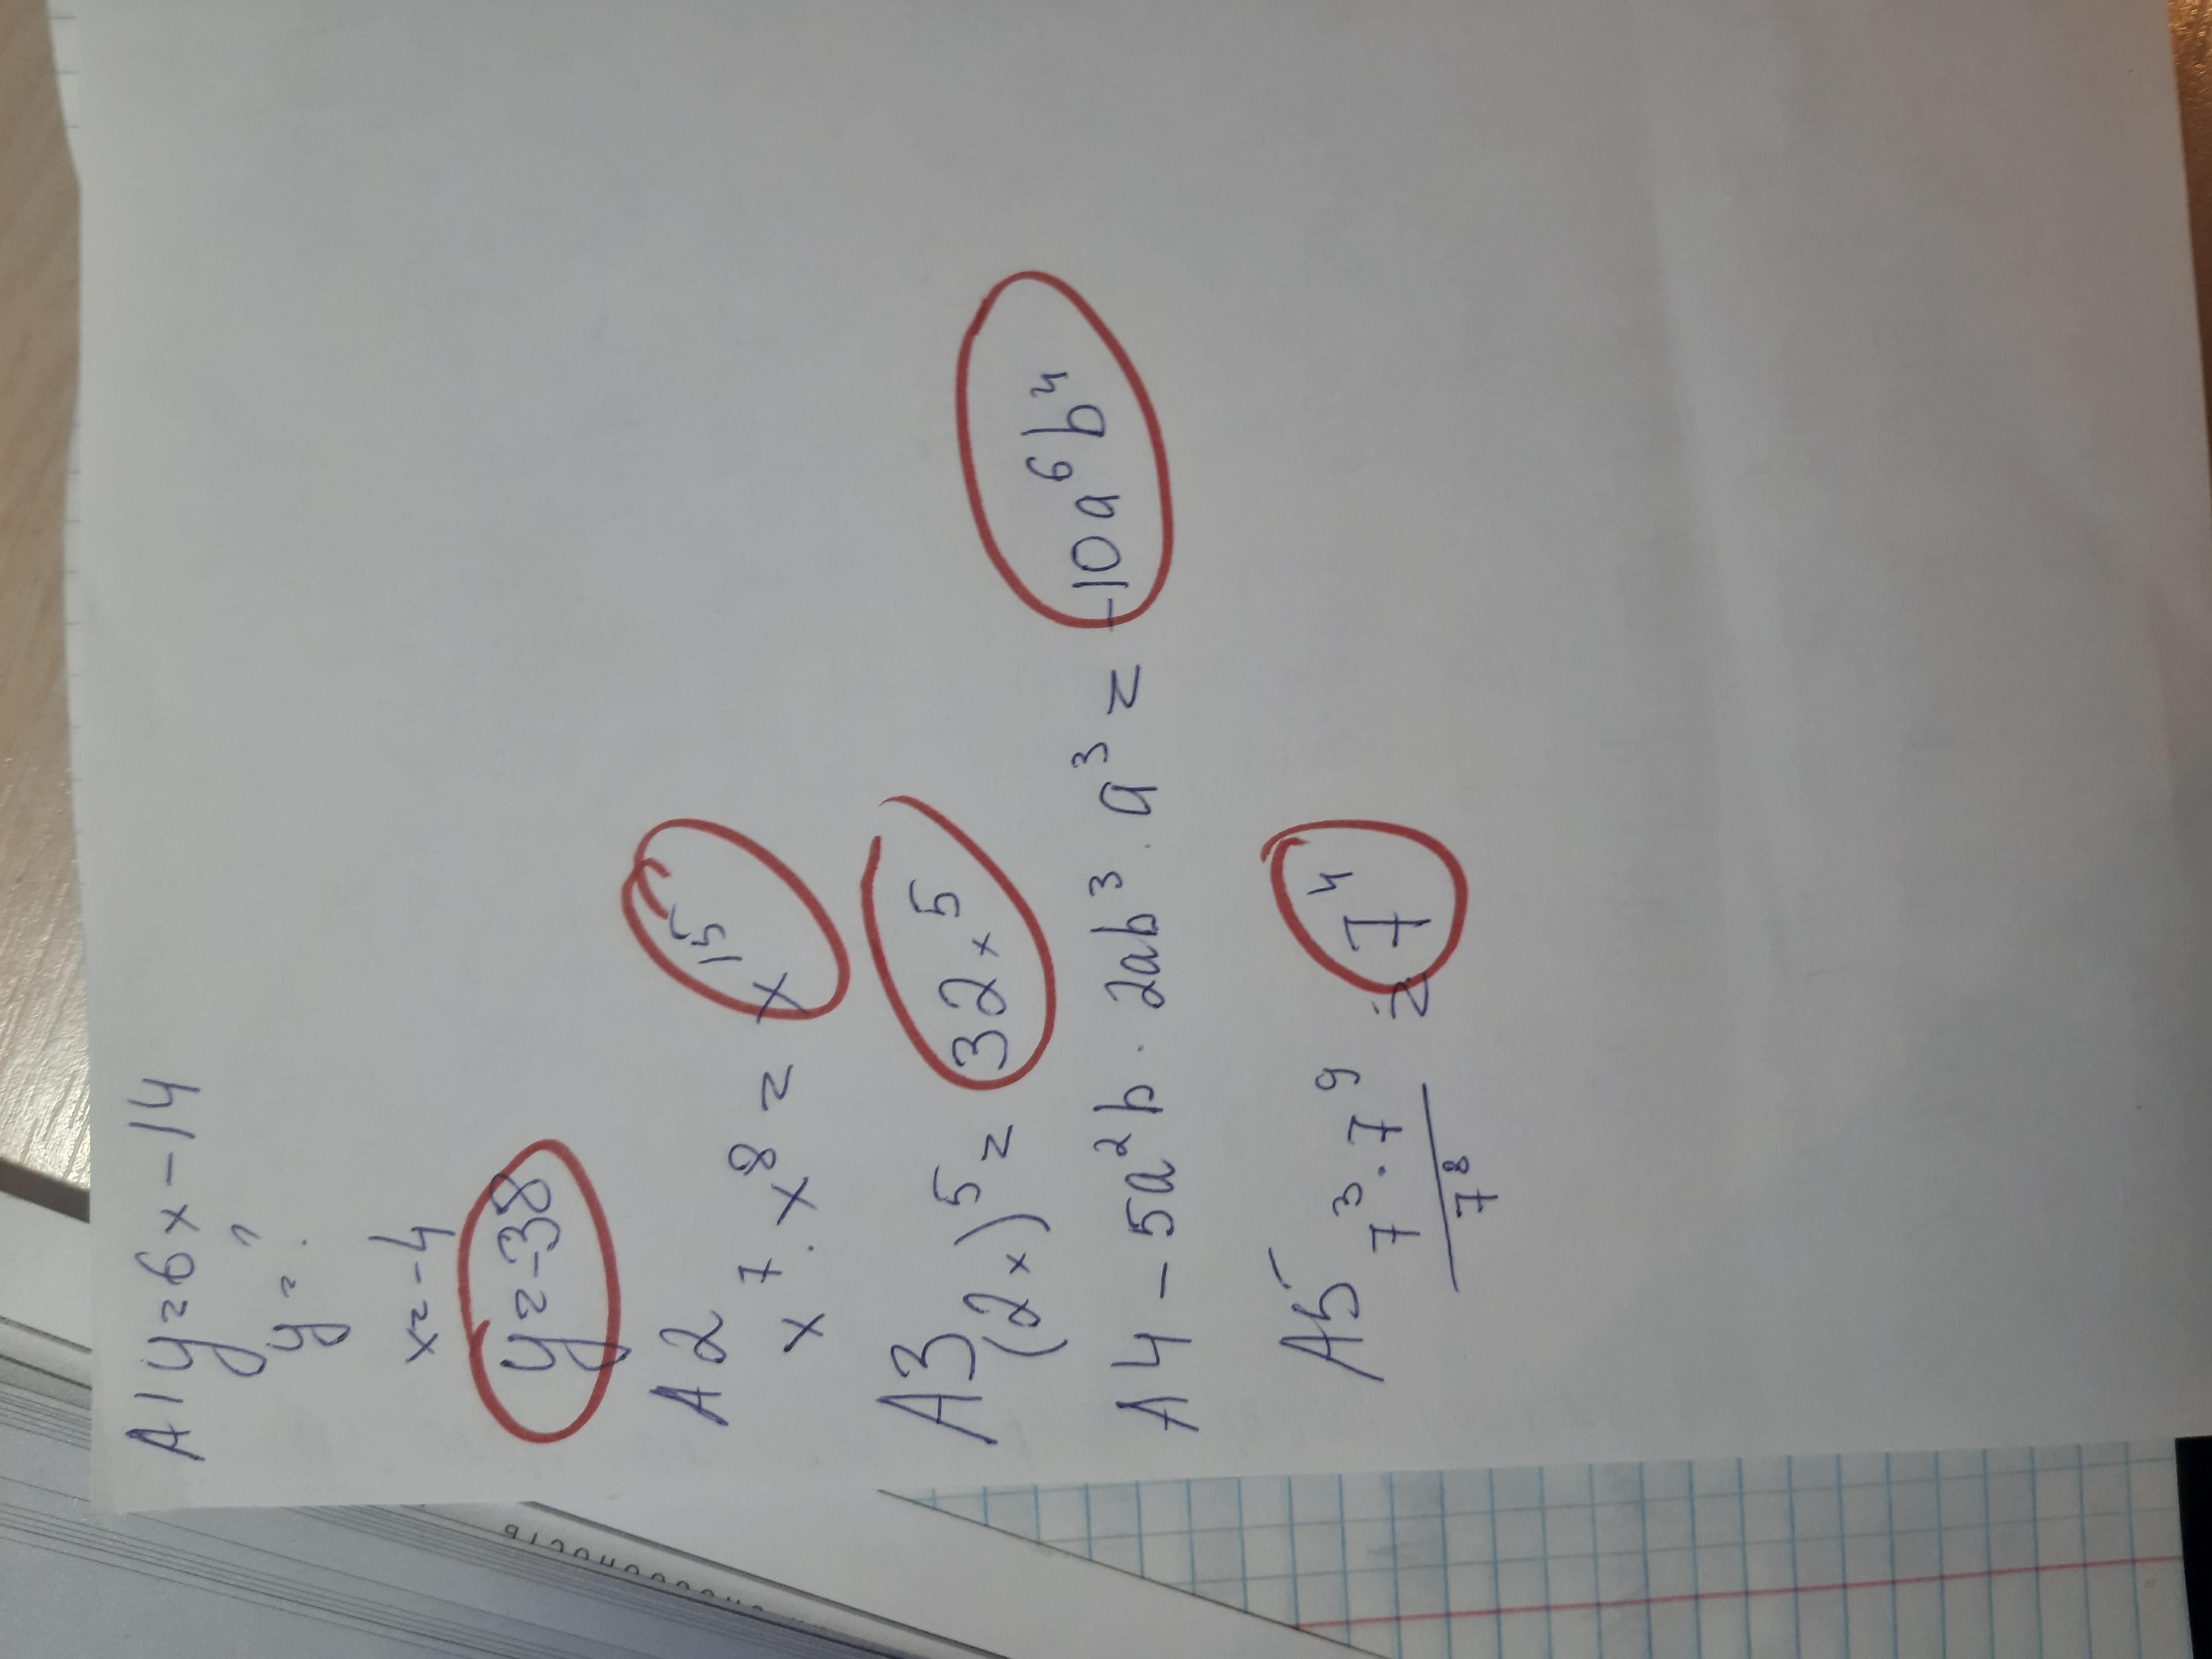 A1 y=6x-14
y=?
x=-4
y=-38
A2
x⁷·x⁸=x¹⁵
A3
(2x)⁵=32x⁵
A4 -5a²b·2ab³·a³=-10a⁶b⁴
A5
7³·7⁹
7⁸
=7⁴